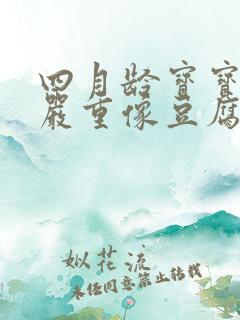 四月龄宝宝
严重像豆腐
似花流
未经同意禁止转载